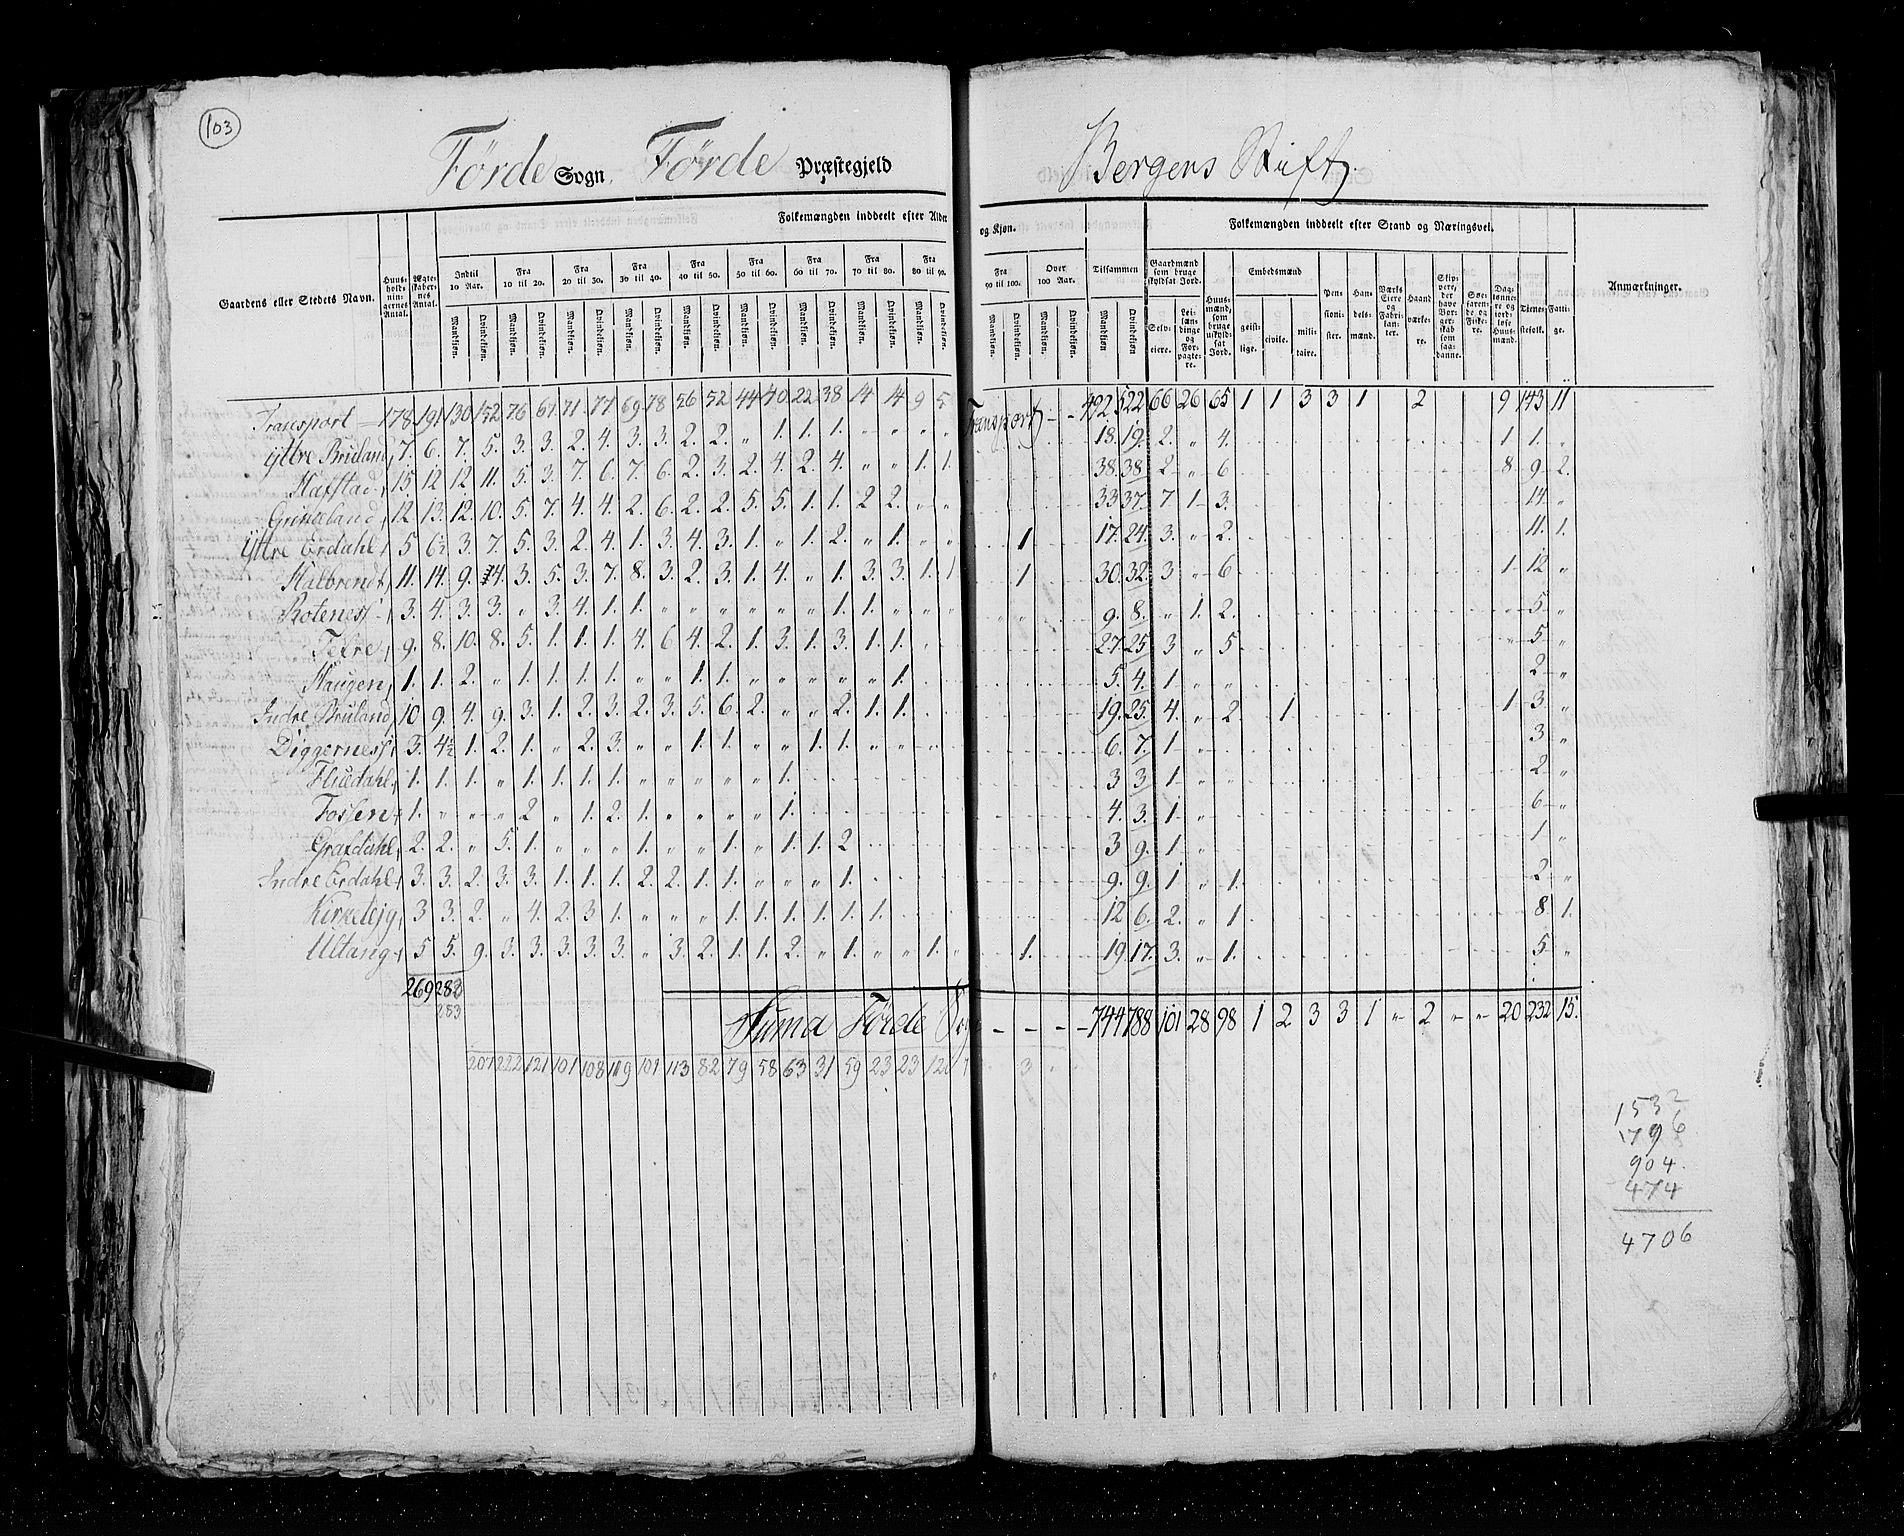 103
Førde Sogn. Førde Præstegjeld Bergens Stift.
Folkemængden inddeelt efter Alder og Kjøn. Folkemængden inddeelt efter Stand og Næringsvei.
Gaardens eller Stedets Navn. Huusholdningernes Antal. Ægteskabernes Antal. Indtil 10 Aar. Fra 10 til 20. Fra 20 til 30. Fra 30 til 40. Fra 40 til 50. Fra 50 til 60. Fra 60 til 70. Fra 70 til 80. Fra 80 til 90. Fra 90 til 100. Over 100 Aar. Tilsammen Gaardmænd som bruge skyldsat Jord. Huusmænd, som bruge uskyldsat Jord. Embedsmænd Pensionister. Handelsmænd. Værks Eiere og Fabrikanter. Haandværkere. Skippere, der have Borgerskab som saadanne. Søefarende og Fiskere. Daglønnere og jordløse Huusmænd. Tjenestefolk. Fattige. Anmærkninger.
Mandkjøn. Qvindekjøn. Mandkjøn. Qvindekjøn. Mandkjøn. Qvindekjøn. Mandkjøn. Qvindekjøn. Mandkjøn. Qvindekjøn. Mandkjøn. Qvindekjøn. Mandkjøn. Qvindekjøn. Mandkjøn. Qvindekjøn. Mandkjøn. Qvindekjøn. Mandkjøn. Qvindekjøn. Mandkjøn. Qvindekjøn. Mandkjøn Qvindekjøn Selveiere. Leilændinge og Forpagtere. geistlige. civile. militaire.
Transport 178 191 130 152 76 67 71 77 69 78 56 52 44 40 22 38 14 14 9 5 Transport 492 522 66 26 65 1 1 3 3 1 2 9 143 11
Yttre Bruland 7. 6. 7. 5. 3. 3. 2. 4. 3. 3. 2. 2. " 1. 1. 1. " " " " 18. 19. 2. " 4. 1 1. "
Hafstad 15 12 12 11. 5. 3. 7. 6. 7. 6. 2. 3. 2. 4. 2. 4. " " 1. 1. 38. 38. 2 " 6 8 9 2.
Grimeland 12 13. 12. 10. 5. 7. 4. 4. 2. 6. 2. 2. 5. 5. 1. 1. 2 2. " " 33 37. 7 1 3. 14 "
Yttre Erdahl 5 6½ 3. 7. 5. 3. 2. 4. 1. 3. 4. 3. 1. " 1. 2. " 1. " " 1 17. 24. 3. " 2. 11. 1.
Halbrendt 11. 14. 9. 4. 3. 5. 3. 7. 8. 3. 2. 3. 1. 4. " 1. 3. 3. 1. 1 1 30. 32. 3 " 6 1 12 "
Rotenes 3. 4. 3. 3. " 3. 4. 1. 1. " " " " " " 1. 1. " " " 9. 8. " 1. 2. 5. "
Tefre 9. 8. 10. 8. 5. 1. 1. 1. 4. 6 4. 2. 1. 3. 1. 3. 1. 1. 27. 25 3 " 5 5 "
Haugen 1. 1. 2. " 1. 1. 1. 1. " " 1. 1. " " " " " 1. 5. 4. 1 " " 2 "
Indre Bruland 10 9. 4. 9. 3. 1. 2. 3. 2. 3. 5. 6 2. " " 2. 1. 1. 19. 25. 4. " 2. 1. 1 3. "
Diggernes 3. 4½ 1. 2. 1. " 2. 3. " " 1. 1. " " 1. 1. " " " 6. 7. 1 " 3 "
Huldahl 1. 1. 1. " 1. 1. 1. 1. " " " " " 1. 3 3 1. " 2 "
Fossen 1. " " " 2 " 1. 2. 1. " " " " 1. 4. 3. 1 " 6 "
Grafdahl 2. 2. " 5. 1. " " " 1. " " 1. " 1. 1. 2 3 9. 1 " 1 "
Indre Erdahl 3. 3. 2. 3. 3. 1. 1. 1. 2. 2. 1. 1. " " " 1. 9. 9. 1. " 1. 2 "
Kirketeig 3 3. 2. " 4. 2. 3 1. " " " 1. 1. 1. 1. 1. 1. 12 6. 2. " 1. 8. 1.
Ultang 5 5. 9. 3. 3. 3. 3. 3. " 3. 2. 1. 1. 2. " 1. " " 1. " 1. 19. 17. 3. " 1. 5 "
269 283
283
Suma Førde Sogn 744 788 101 28 98 1 2 3 3 1 " 2 " " 20 232 15.
207 222 121 101 108 119 101 113 82 79 58 63 31 59 23 23 12 7 3 "
1532
1796
904.
474
4706